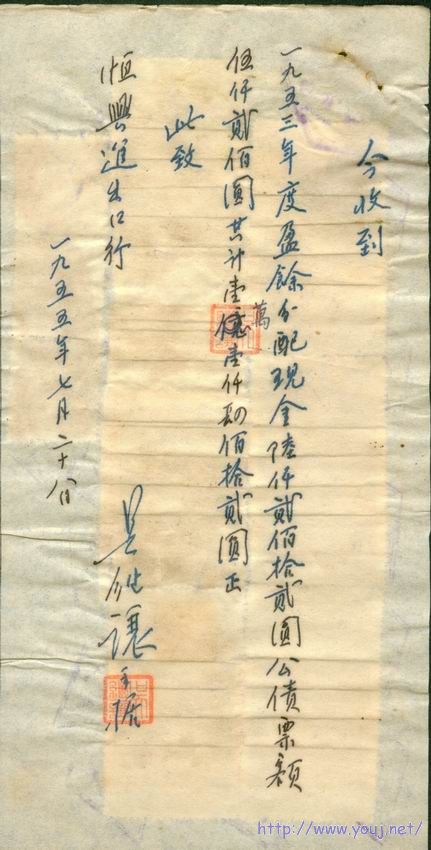 今收到
一九五三年度盈餘分配現金陸仟貳佰拾貳圓公債票額
伍仟貳佰圓共计壹萬壹仟肆佰拾貳圓正
此致
恒興進出口行
讓手据
一九五五年七月二十日
http://www.youj.net/